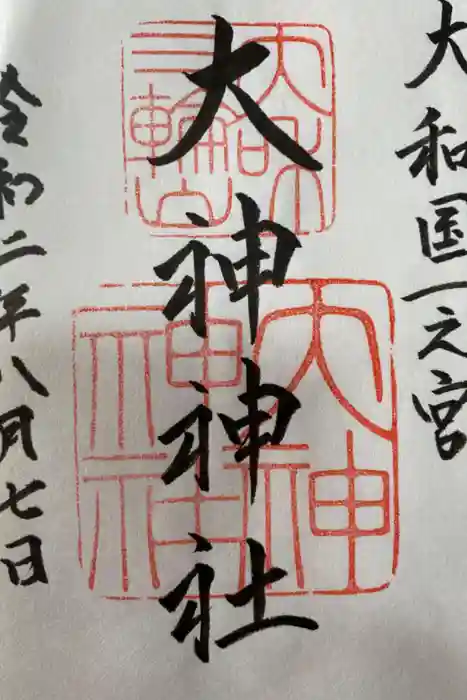 大和国一之宮
大神神社
令和二年八月七日
大和
三輪山
大神
神社